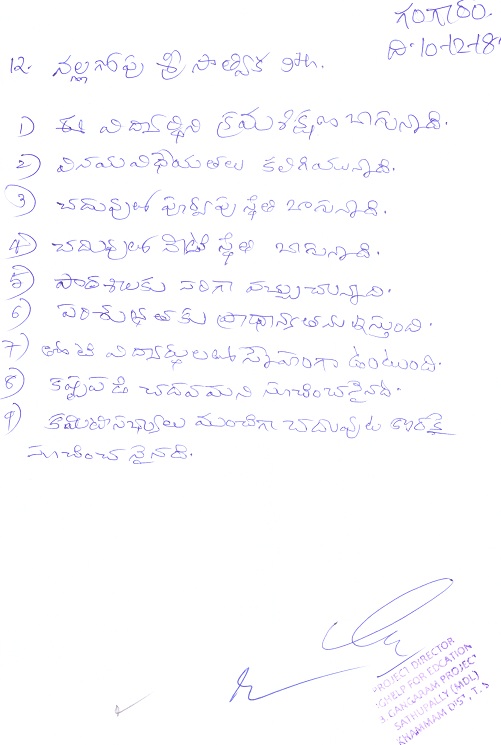 గంగారం.
ది-10-12-18
12. నల్లగోపు శ్రీ సాత్విక 9th.
1) ఈ విద్యార్థిని క్రమశిక్షణ బాగున్నది.
2) వినయవిధేయతలు కలిగియున్నది.
3) చదువులో పూర్వపు స్థితి బాగున్నది.
4) చదువులో నేటి స్థితి బాగున్నది.
5) పాఠశాలకు సరిగా వచ్చుచున్నది.
6) పరిశుభ్రతకు ప్రాధాన్యతను ఇస్తుంది.
7) తోటి విద్యార్థులతో స్నేహంగా ఉంటుంది.
8) కష్టపడి చదవమని సూచించనైనది.
9) కమిటిసభ్యులు మంచిగా చదువుట కొరకై
సూచించనైనది.
PROJECT DIRECTOR
HELP FOR EDCATION
GANGARAM PROJECT
SATHUPALLY (MDL)
KHAMMAM DIST, T.S